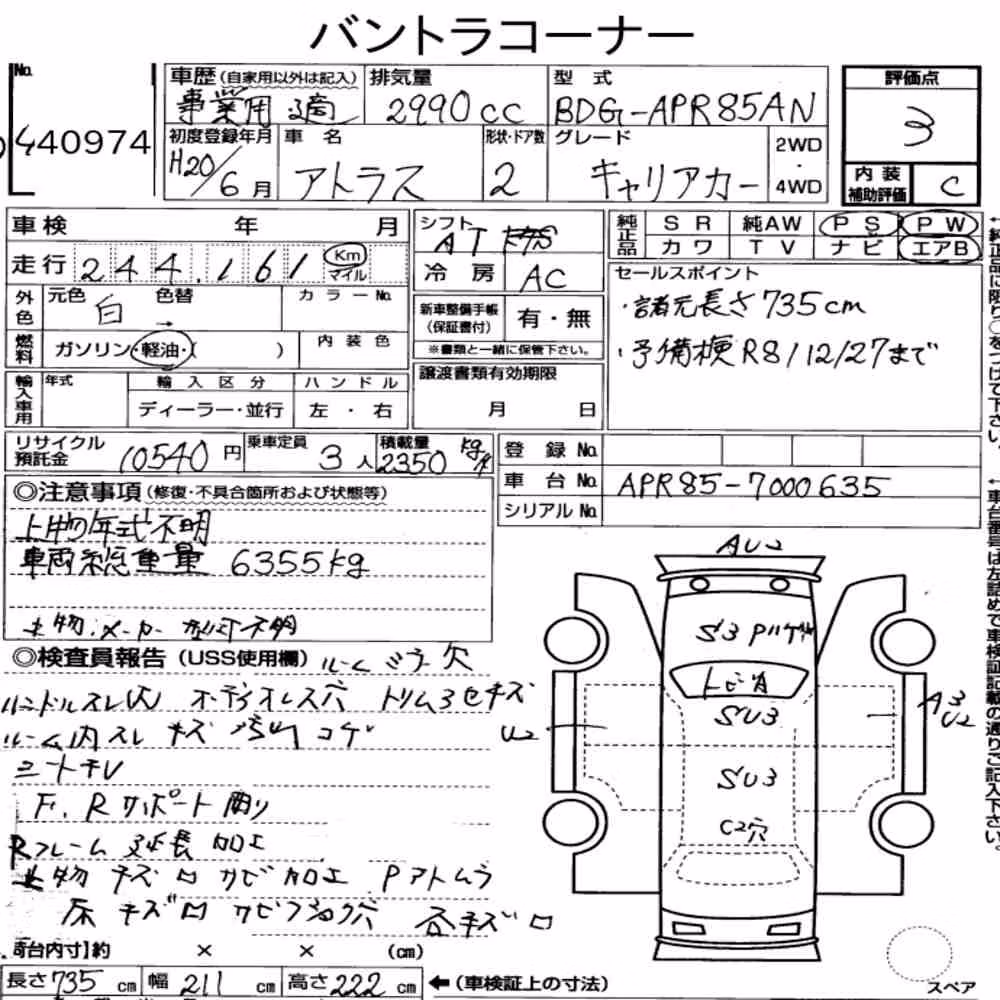 バントラコーナー
No.
440974
車歴(自家用以外は記入)
事業用 適
排気量
2990cc
型式
BDG-APR85AN
評価点
3
初度登録年月
H20/6月
車名
アトラス
形状・ドア数
2
グレード
キャリアカー
2WD
・
4WD
内装
補助評価
C
車検 年 月
走行 244,161 Km
マイル
シフト
AT
冷房 AC
純正品
SR 純AW PS PW
カワ TV ナビ エアB
セールスポイント
・諸元長さ735cm
・予備検R8/12/27まで
外色
元色 白 色替 → カラーNo.
燃料
ガソリン・軽油・( )
内装色
新車整備手帳
(保証書付)
有・無
※書類と一緒に保管下さい。
輸入車用
年式
輸入区分
ディーラー・並行
ハンドル
左・右
譲渡書類有効期限
月 日
リサイクル
預託金 10540円
乗車定員 3人
積載量
2350 kg
登録No.
車台No. APR85-7000635
シリアルNo.
◎注意事項(修復・不具合箇所および状態等)
上物年式不明
車両総重量 6355kg
上物.メーカー 型式不明
◎検査員報告(USS使用欄) ルームミラー欠
ハンドルスレ(大) オーディオレス穴 トリム3セキズ
ルーム内スレ キズ 汚れ コゲ
シートキレ
F.Rサポート
Rフレーム 延長 加工
上物 キズ凹 サビ加工 Pアトムラ
床 キズ凹 サビフショク穴 各キズ凹
AU2
S3
トビ有
SU3
SU3
C2穴
U2
A3
U2
荷台内寸】約 × × (cm)
長さ735cm 幅211cm 高さ222cm ←(車検証上の寸法)
スペア
←純正品に限り○をつけて下さい。
←車台番号は左詰めで車検証記載の通りご記入下さい。